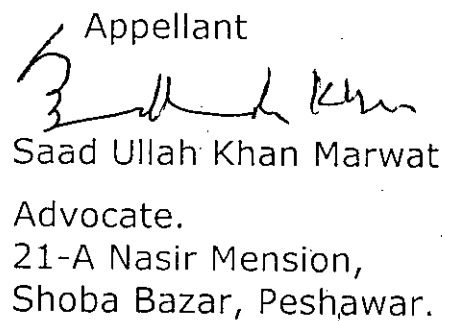 Appellant
Saad Ullah Khan Marwat
Advocate.
21-A Nasir Mension,
Shoba Bazar, Peshawar.